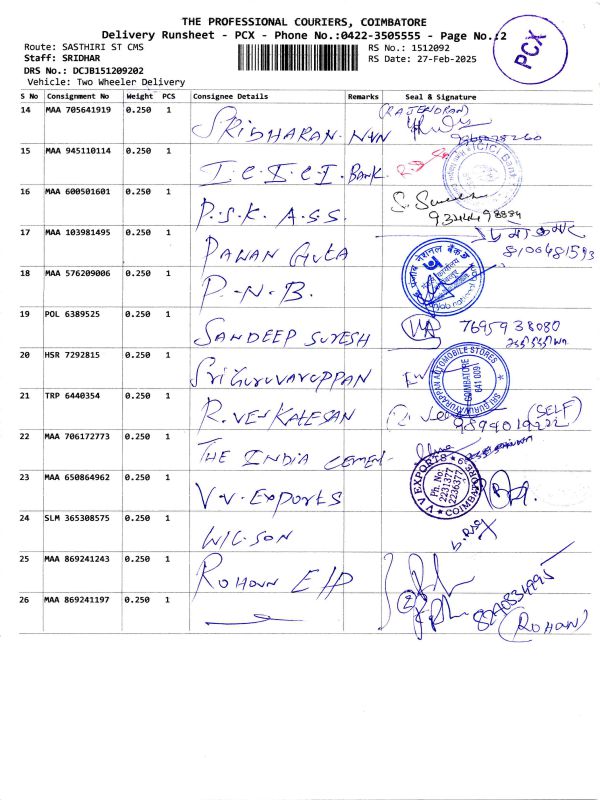 THE PROFESSIONAL COURIERS, COIMBATORE
Delivery Runsheet - PCX - Phone No.:0422-3505555 - Page No.:2
PCX
Route: SASTHIRI ST CMS
RS No.: 1512092
Staff: SRIDHAR
RS Date: 27-Feb-2025
DRS No.: DCJB151209202
Vehicle: Two Wheeler Delivery
S No Consignment No Weight PCS Consignee Details Remarks Seal & Signature
14 MAA 705641919 0.250 1 SRIDHARAN. NVN (RAJENDRAN)
15 MAA 945110114 0.250 1 I.C.I.C.I. Bank. ICICI Bank
16 MAA 600501601 0.250 1 P.S.K. A.S.S.
17 MAA 103981495 0.250 1 PAWAN GUTA 8100681593
18 MAA 576209006 0.250 1 P.N.B. पंजाब नेशनल बैंक
19 POL 6389525 0.250 1 SANDEEP SURESH 7695938080
20 HSR 7292815 0.250 1 SRI GURUVAYURAPPAN
SRI GURUVAYURAPPAN AUTOMOBILE STORES COIMBATORE 641 009
21 TRP 6440354 0.250 1 R. VENKATESAN (SELF)
22 MAA 706172773 0.250 1 THE INDIA CEMEN-
23 MAA 650864962 0.250 1 V.V. EXPORTS
V V EXPORTS COIMBATORE Ph. No. 2231377 2236377
24 SLM 365308575 0.250 1 WILSON
25 MAA 869241243 0.250 1 ROHAN E/P
26 MAA 869241197 0.250 1 2 8290834995 (ROHAN)